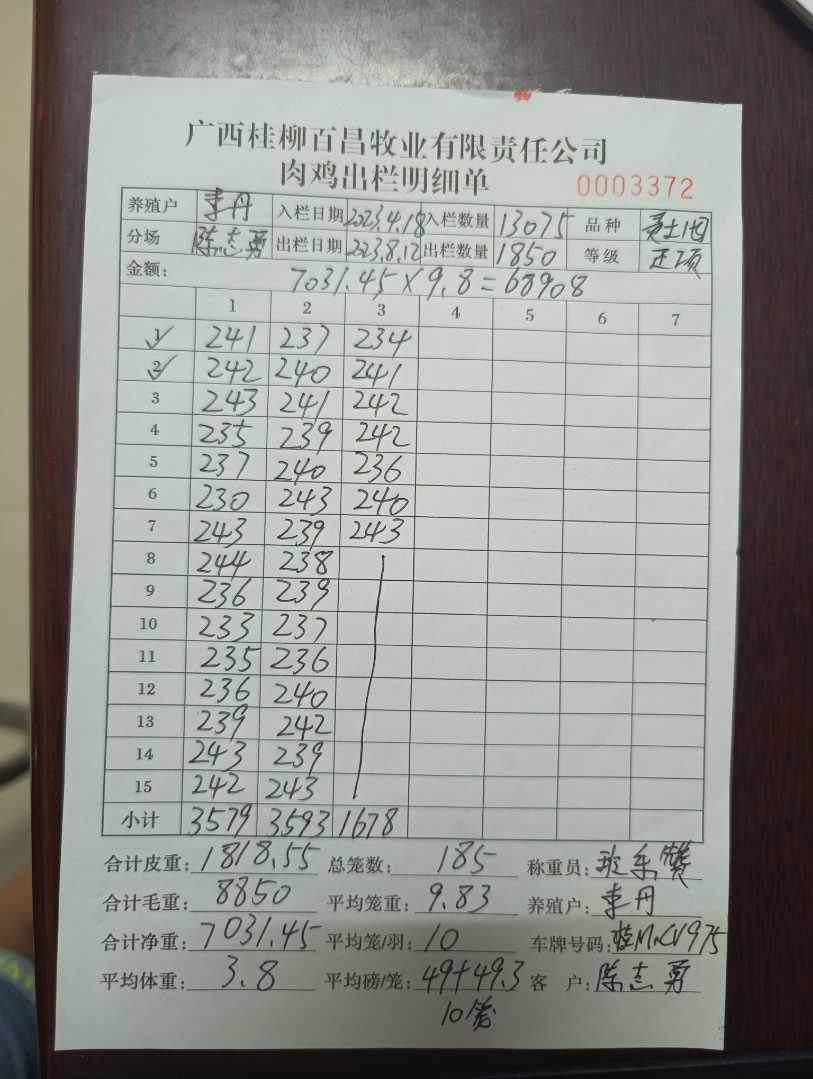 广西桂柳百昌牧业有限责任公司
肉鸡出栏明细单 0003372
养殖户 李丹 入栏日期 2023.4.18 入栏数量 13075 品种
分场 陈志勇 出栏日期 2023.8.12 出栏数量 1850 等级 正项
金额: 7031.45×9.8=68908
1 2 3 4 5 6 7
1 241 237 234
2 242 240 241
3 243 241 242
4 235 239 242
5 237 240 236
6 230 243 240
7 243 239 243
8 244 238
9 236 239
10 233 237
11 235 236
12 236 240
13 239 242
14 243 239
15 242 243
小计 3579 3593 1678
合计皮重: 1818.55 总笼数: 185 称重员:
合计毛重: 8850 平均笼重: 9.83 养殖户: 李丹
合计净重: 7031.45 平均笼/羽: 10 车牌号码:
平均体重: 3.8 平均磅/笼: 49+49.3 客 户: 陈志勇